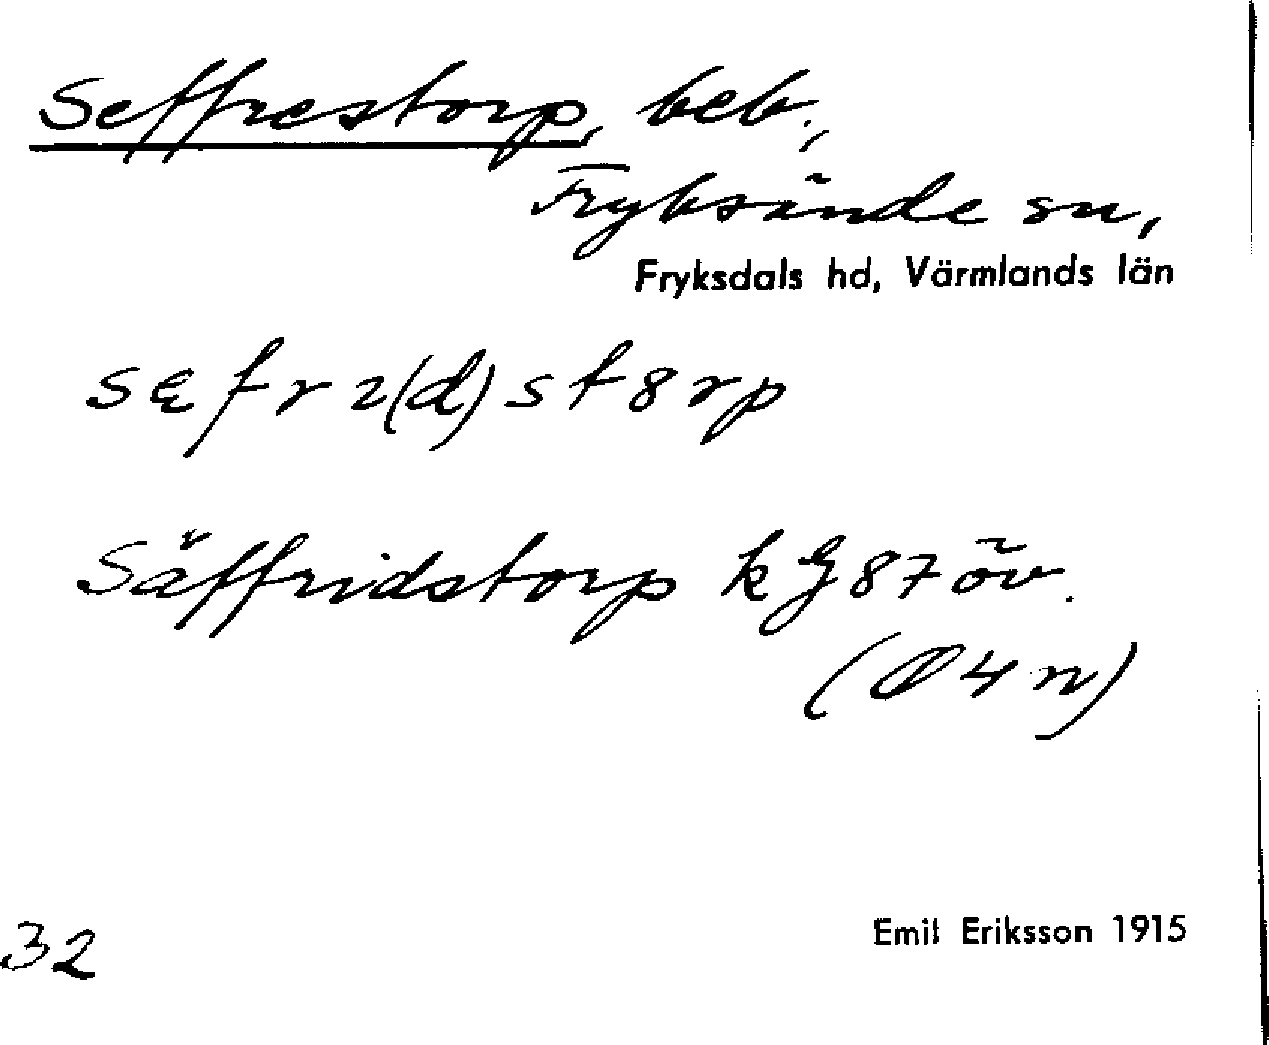 Seffrestorp, beb.,
Fryksände sn,
Fryksdals hd, Värmlands län
sæfrɩ(d)st8rp
Säffridstorp kG87öv.
(Ø4n)
32
Emil Eriksson 1915